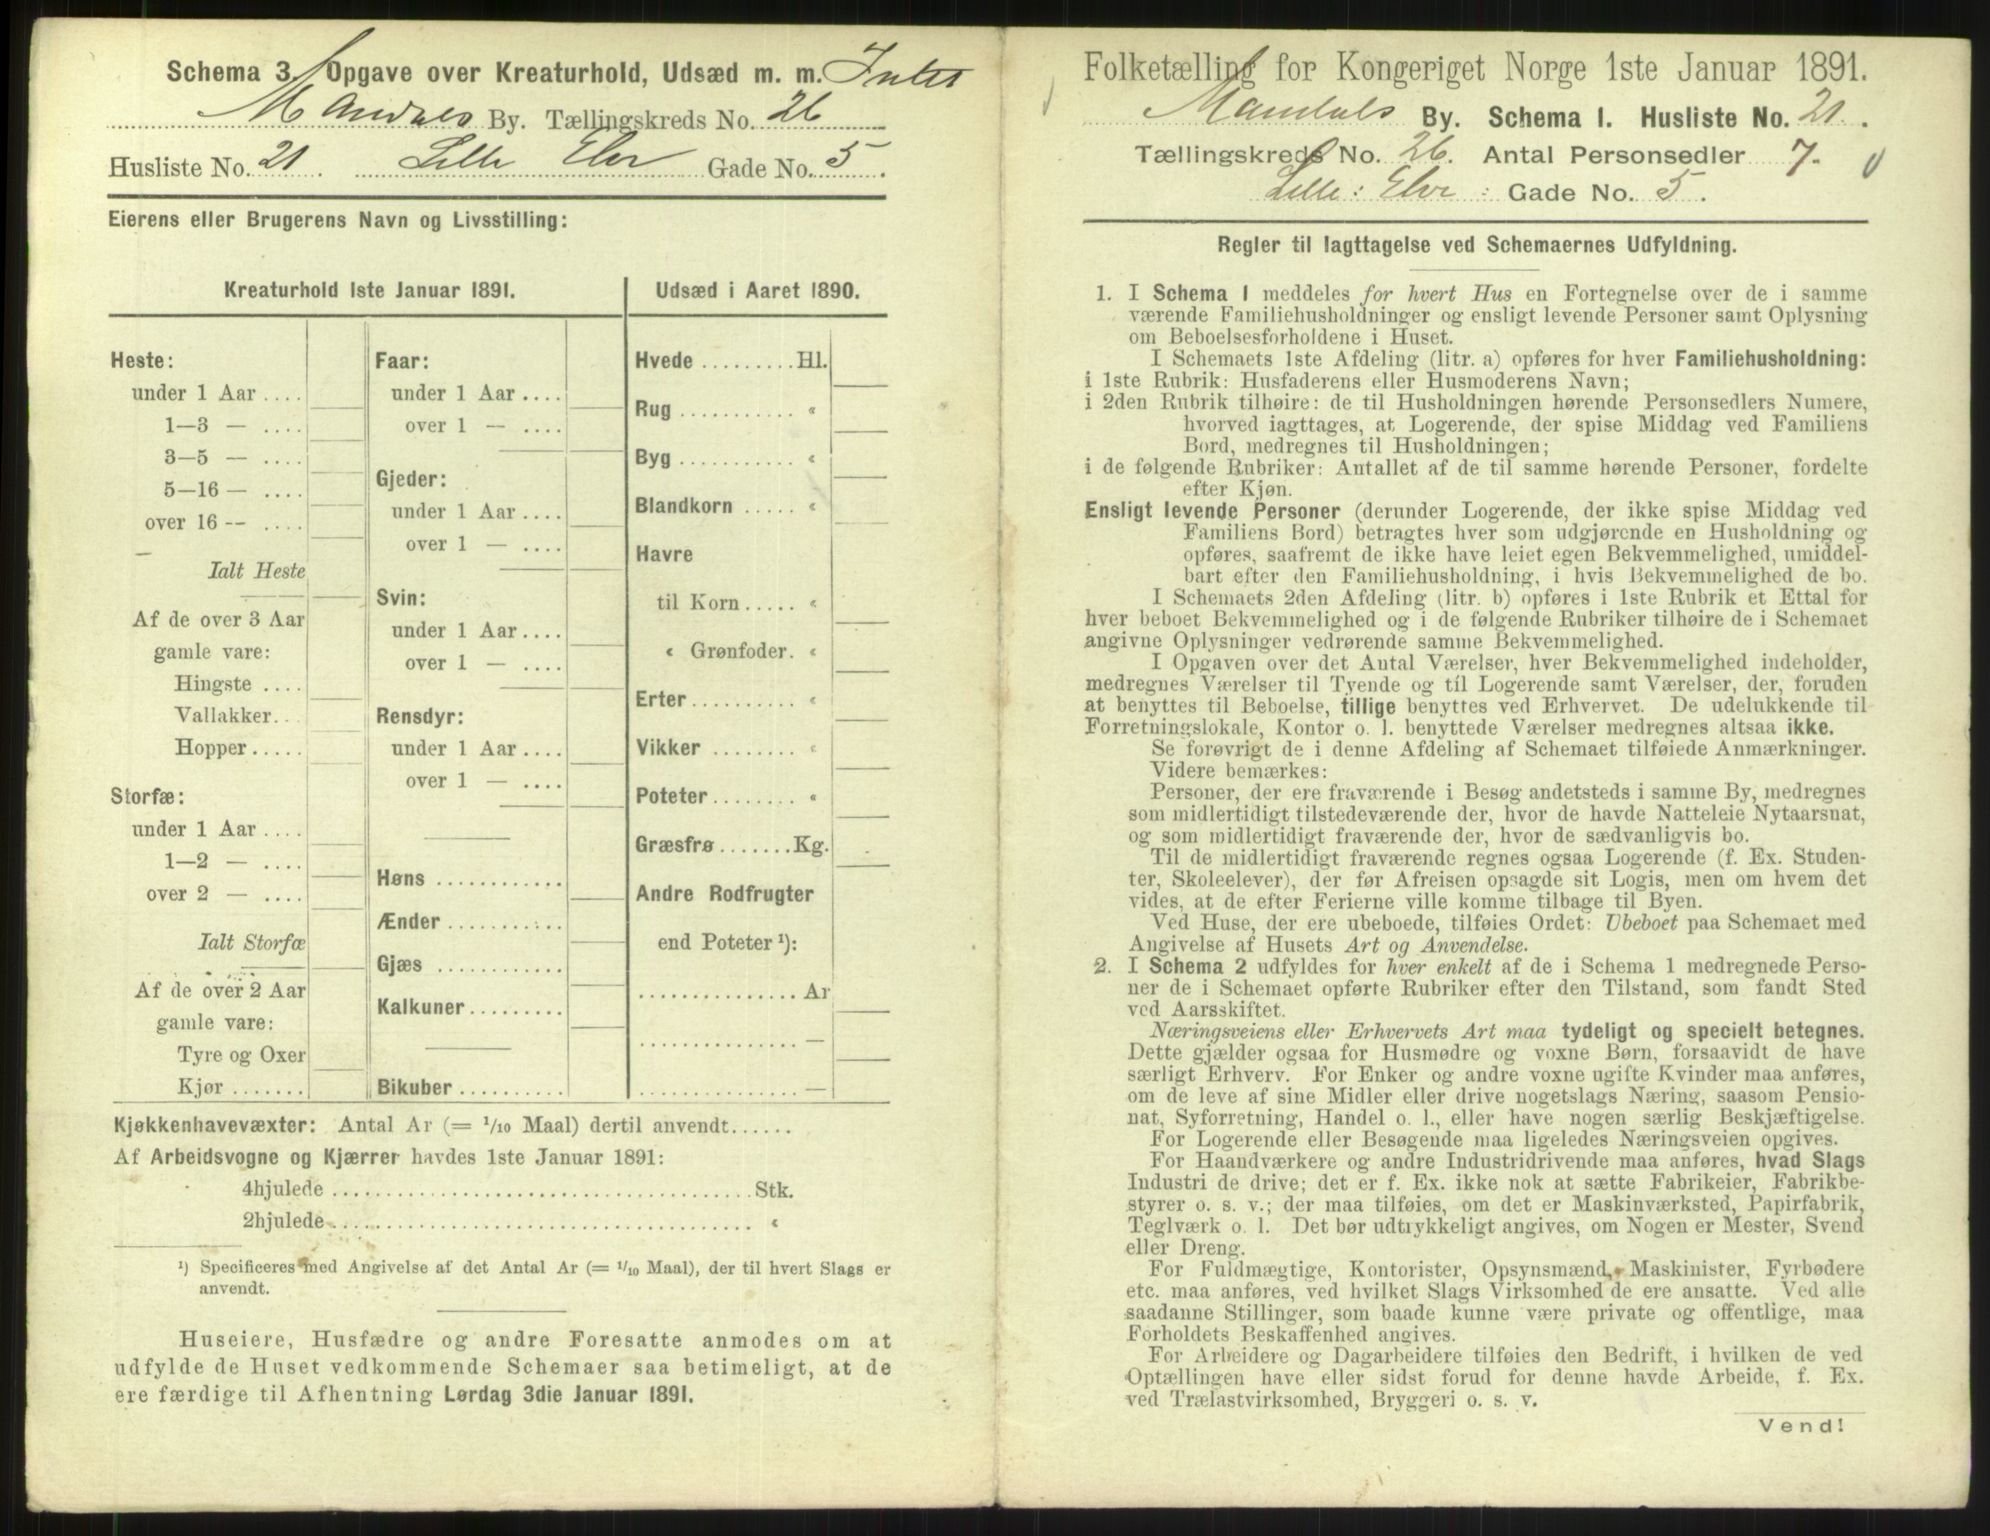 Schema 3. Opgave over Kreaturhold, Udsæd m. m. Intet
Mandals By. Tællingskreds No. 26
Husliste No. 21. Lille Elv Gade No. 5.
Eierens eller Brugerens Navn og Livsstilling:
Kreaturhold 1ste Januar 1891.
Heste:
under 1 Aar ....
1—3 — ....
3—5 — ....
5—16 — ....
over 16 -- ....
Ialt Heste
Af de over 3 Aar
gamle vare:
Hingste ....
Vallakker..
Hopper.....
Storfæ:
under 1 Aar ....
1—2 — ....
over 2 — ....
Ialt Storfæ
Af de over 2 Aar
gamle vare:
Tyre og Oxer
Kjør .......
Faar:
under 1 Aar ....
over 1 — ....
Gjeder:
under 1 Aar ....
over 1 — ....
Svin:
under 1 Aar ....
over 1 — ....
Rensdyr:
under 1 Aar ....
over 1 — ....
Høns ............
Ænder ...........
Gjæs ............
Kalkuner.........
Bikuber ..........
Udsæd i Aaret 1890.
Hvede .........Hl.
Rug ........... «
Byg ........... «
Blandkorn ..... «
Havre
til Korn..... «
« Grønfoder. «
Erter.......... «
Vikker ........ «
Poteter........ «
Græsfrø.......Kg.
Andre Rodfrugter
end Poteter ¹):
...............Ar
............... —
............... —
Kjøkkenhavevæxter: Antal Ar (= 1/10 Maal) dertil anvendt......
Af Arbeidsvogne og Kjærrer havdes 1ste Januar 1891:
4hjulede ........................................Stk.
2hjulede ........................................ «
¹) Specificeres med Angivelse af det Antal Ar (= 1/10 Maal), der til hvert Slags er
anvendt.
Huseiere, Husfædre og andre Foresatte anmodes om at
udfylde de Huset vedkommende Schemaer saa betimeligt, at de
ere færdige til Afhentning Lørdag 3die Januar 1891.
Folketælling for Kongeriget Norge 1ste Januar 1891.
Mandals By. Schema I. Husliste No. 21.
Tællingskreds No. 26. Antal Personsedler 7.
Lille: Elv: Gade No. 5.
Regler til Iagttagelse ved Schemaernes Udfyldning.
1. I Schema 1 meddeles for hvert Hus en Fortegnelse over de i samme
værende Familiehusholdninger og ensligt levende Personer samt Oplysning
om Beboelsesforholdene i Huset.
I Schemaets 1ste Afdeling (litr. a) opføres for hver Familiehusholdning:
i 1ste Rubrik: Husfaderens eller Husmoderens Navn;
i 2den Rubrik tilhøire: de til Husholdningen hørende Personsedlers Numere,
hvorved iagttages, at Logerende, der spise Middag ved Familiens
Bord, medregnes til Husholdningen;
i de følgende Rubriker: Antallet af de til samme hørende Personer, fordelte
efter Kjøn.
Ensligt levende Personer (derunder Logerende, der ikke spise Middag ved
Familiens Bord) betragtes hver som udgjørende en Husholdning og
opføres, saafremt de ikke have leiet egen Bekvemmelighed, umiddel-
bart efter den Familiehusholdning, i hvis Bekvemmelighed de bo.
I Schemaets 2den Afdeling (litr. b) opføres i 1ste Rubrik et Ettal for
hver beboet Bekvemmelighed og i de følgende Rubriker tilhøire de i Schemaet
angivne Oplysninger vedrørende samme Bekvemmelighed.
I Opgaven over det Antal Værelser, hver Bekvemmelighed indeholder,
medregnes Værelser til Tyende og til Logerende samt Værelser, der, foruden
at benyttes til Beboelse, tillige benyttes ved Erhvervet. De udelukkende til
Forretningslokale, Kontor o. l. benyttede Værelser medregnes altsaa ikke.
Se forøvrigt de i denne Afdeling af Schemaet tilføiede Anmærkninger.
Videre bemærkes:
Personer, der ere fraværende i Besøg andetsteds i samme By, medregnes
som midlertidigt tilstedeværende der, hvor de havde Natteleie Nytaarsnat,
og som midlertidigt fraværende der, hvor de sædvanligvis bo.
Til de midlertidigt fraværende regnes ogsaa Logerende (f. Ex. Studen-
ter, Skoleelever), der før Afreisen opsagde sit Logis, men om hvem det
vides, at de efter Ferierne ville komme tilbage til Byen.
Ved Huse, der ere ubeboede, tilføies Ordet: Ubeboet paa Schemaet med
Angivelse af Husets Art og Anvendelse.
2. I Schema 2 udfyldes for hver enkelt af de i Schema 1 medregnede Perso-
ner de i Schemaet opførte Rubriker efter den Tilstand, som fandt Sted
ved Aarsskiftet.
Næringsveiens eller Erhvervets Art maa tydeligt og specielt betegnes.
Dette gjælder ogsaa for Husmødre og voxne Børn, forsaavidt de have
særligt Erhverv. For Enker og andre voxne ugifte Kvinder maa anføres,
om de leve af sine Midler eller drive nogetslags Næring, saasom Pensio-
nat, Syforretning, Handel o. l., eller have nogen særlig Beskjæftigelse.
For Logerende eller Besøgende maa ligeledes Næringsveien opgives.
For Haandværkere og andre Industridrivende maa anføres, hvad Slags
Industri de drive; det er f. Ex. ikke nok at sætte Fabrikeier, Fabrikbe-
styrer o. s. v.; der maa tilføies, om det er Maskinværksted, Papirfabrik,
Teglværk o. l. Det bør udtrykkeligt angives, om Nogen er Mester, Svend
eller Dreng.
For Fuldmægtige, Kontorister, Opsynsmænd, Maskinister, Fyrbødere
etc. maa anføres, ved hvilket Slags Virksomhed de ere ansatte. Ved alle
saadanne Stillinger, som baade kunne være private og offentlige, maa
Forholdets Beskaffenhed angives.
For Arbeidere og Dagarbeidere tilføies den Bedrift, i hvilken de ved
Optællingen have eller sidst forud for denne havde Arbeide, f. Ex.
ved Trælastvirksomhed, Bryggeri o. s. v.
Vend!